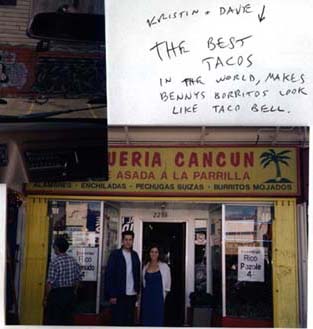 KRISTIN + DAVE ↓
THE BEST
TACOS
IN THE WORLD, MAKES
BENNYS BORRITOS LOOK
LIKE TACO BELL.
UERIA CANCUN
E ASADA A LA PARRILLA
ALAMBRES - ENCHILADAS - PECHUGAS SUIZAS - BURRITOS MOJADOS
2288
Rico
Rico
Pozole
4